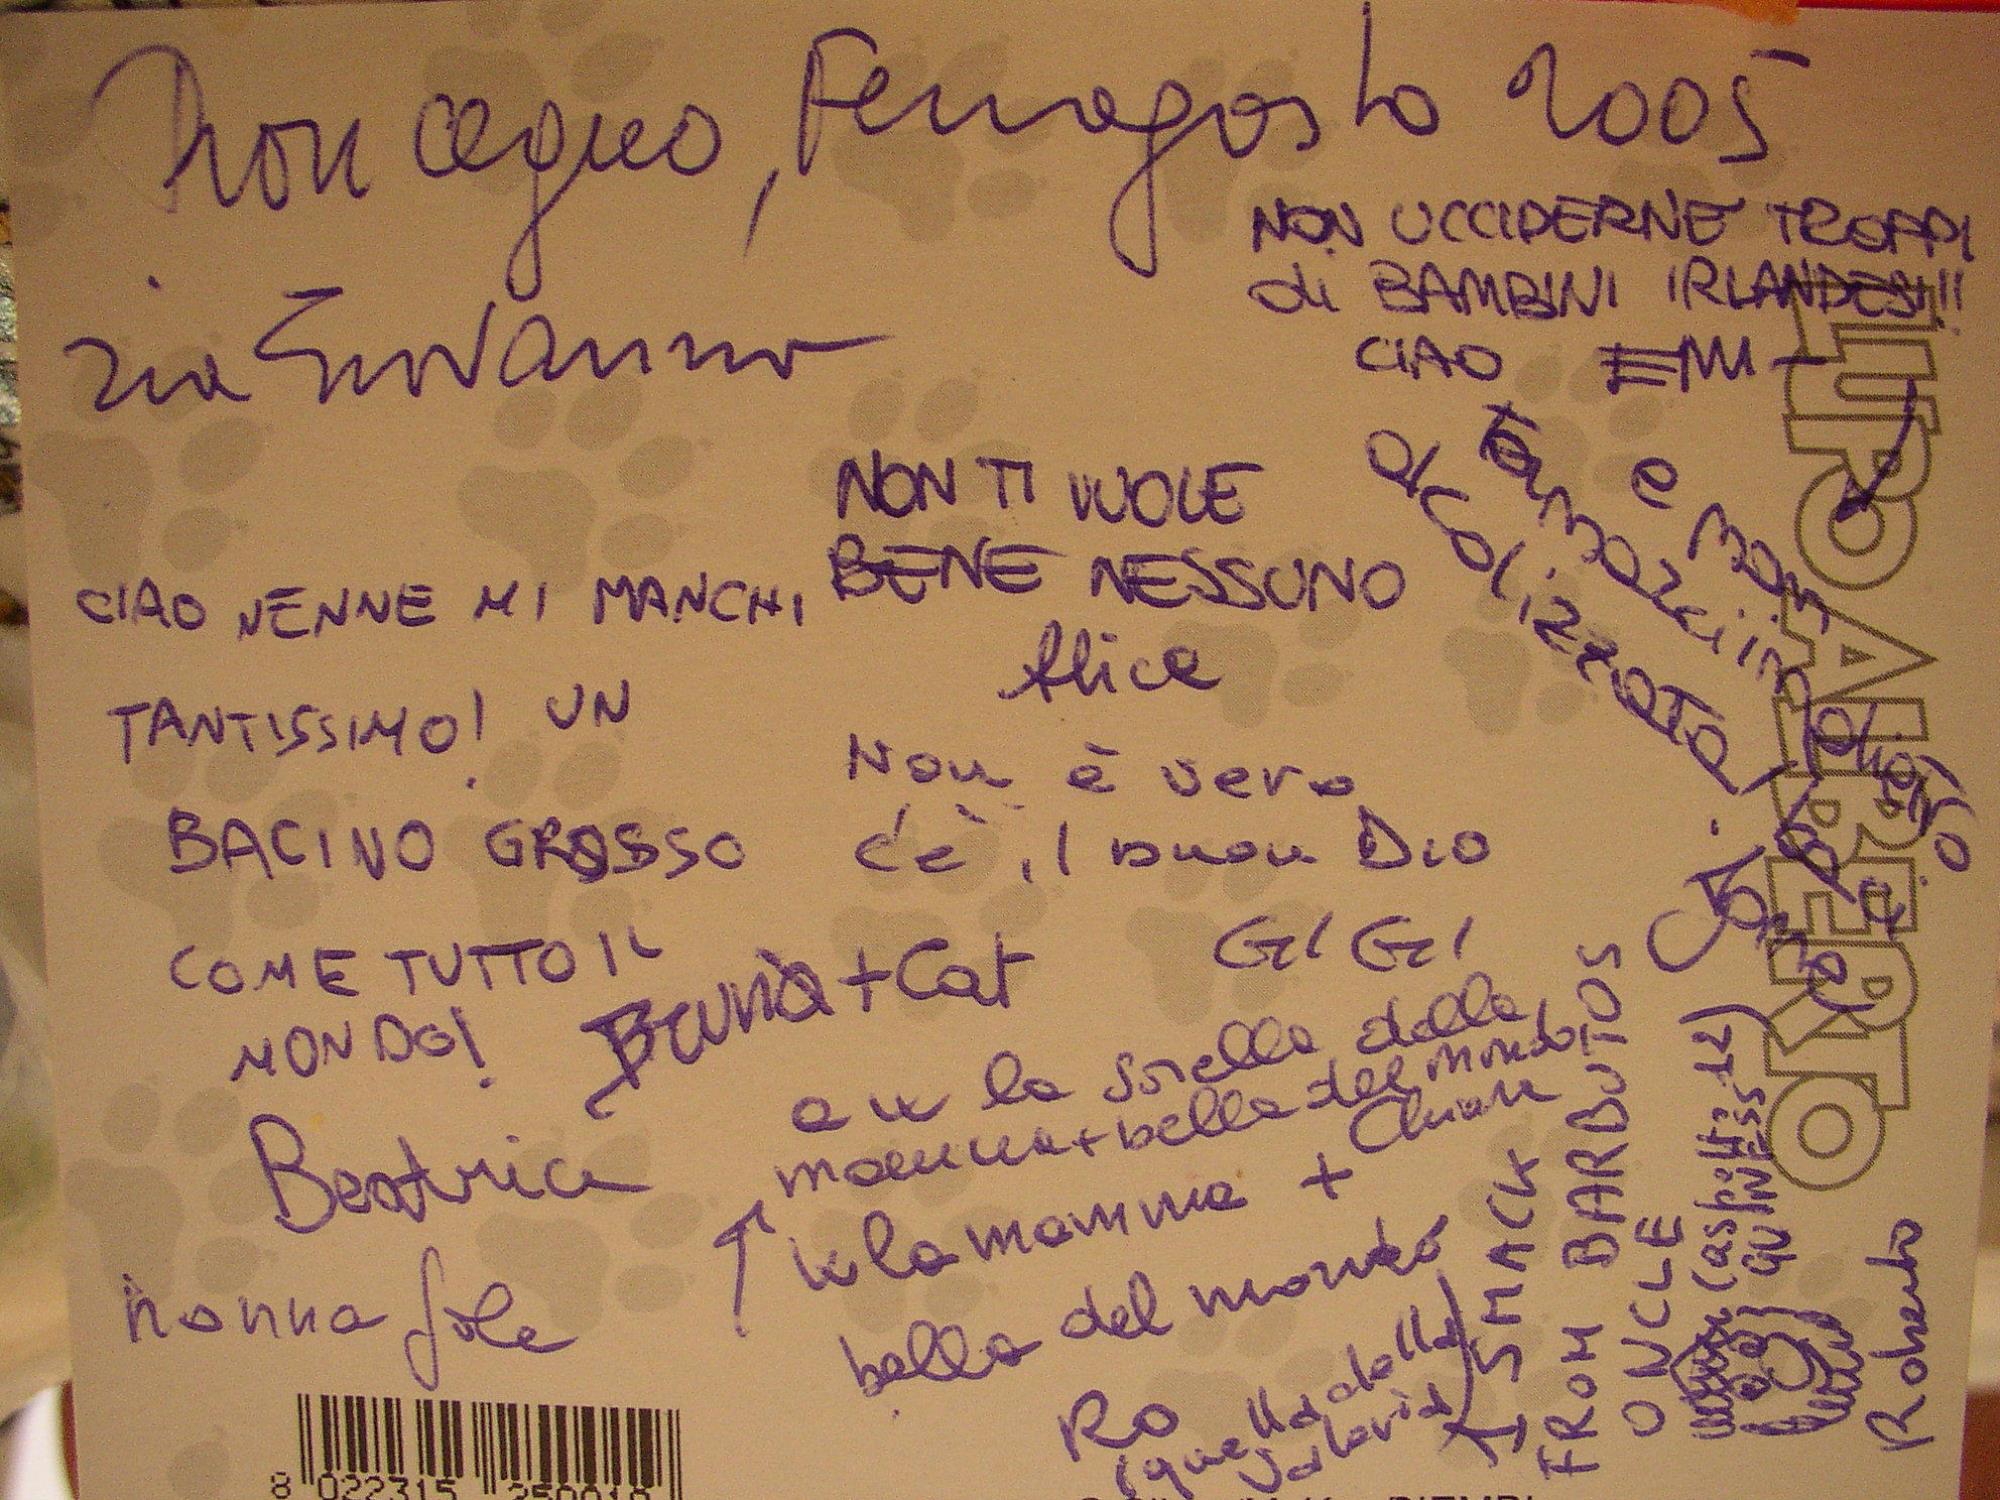 Roncegno, Ferragosto 2005
zia Giovanna
NON UCCIDERNE TROPPI
di BAMBINI IRLANDESI!!
CIAO EMI
NON TI VUOLE
BENE NESSUNO
Alice
CIAO NENNE MI MANCHI
TANTISSIMO! UN
BACINO GROSSO
COME TUTTO IL
MONDO!
Beatrice
Non è vero
c'è il buon Dio
GIGI
Bruna + Cat
nonna Sole
e la sorella della
mamma + bella del mondo
Chiara
la mamma +
bella del mondo
Ro
(quella della
Valeria)
e non
alcolizzata!
1 SMACK
FROM BARBUTOS
ONCLE
(aspetto 12
GUINESS)
Roberto
QUATTRO ALBERO
8 022315 250010